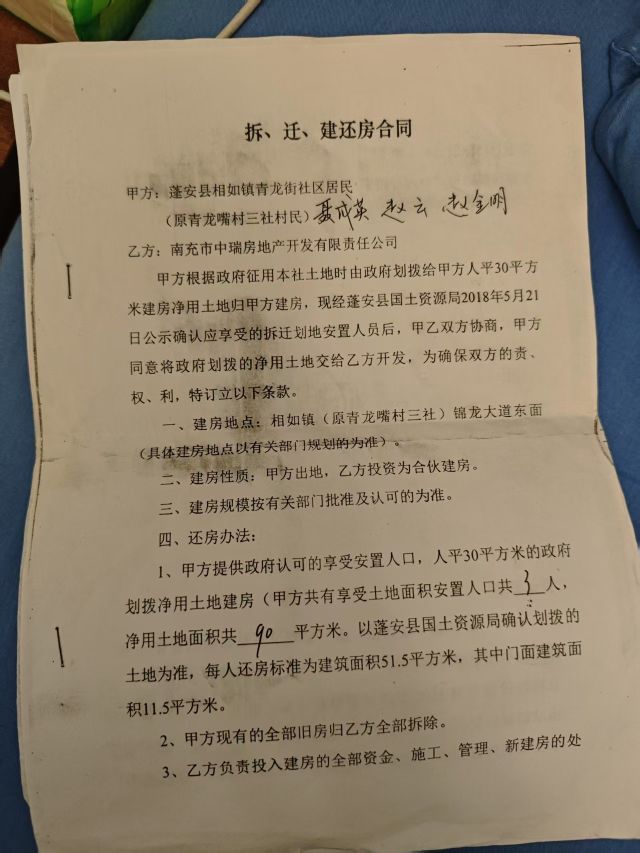 拆、迁、建还房合同
甲方：蓬安县相如镇青龙街社区居民
（原青龙嘴村三社村民）聂成英 赵云 赵全明
乙方：南充市中瑞房地产开发有限责任公司
甲方根据政府征用本社土地时由政府划拨给甲方人平30平方
米建房净用土地归甲方建房，现经蓬安县国土资源局2018年5月21
日公示确认应享受的拆迁划地安置人员后，甲乙双方协商，甲方
同意将政府划拨的净用土地交给乙方开发，为确保双方的责、
权、利，特订立以下条款。
一、建房地点：相如镇（原青龙嘴村三社）锦龙大道东面
（具体建房地点以有关部门规划的为准）。
二、建房性质：甲方出地，乙方投资为合伙建房。
三、建房规模按有关部门批准及认可的为准。
四、还房办法：
1、甲方提供政府认可的享受安置人口，人平30平方米的政府
划拨净用土地建房（甲方共有享受土地面积安置人口共3人，
净用土地面积共90平方米。以蓬安县国土资源局确认划拨的
土地为准，每人还房标准为建筑面积51.5平方米，其中门面建筑面
积11.5平方米。
2、甲方现有的全部旧房归乙方全部拆除。
3、乙方负责投入建房的全部资金、施工、管理、新建房的处